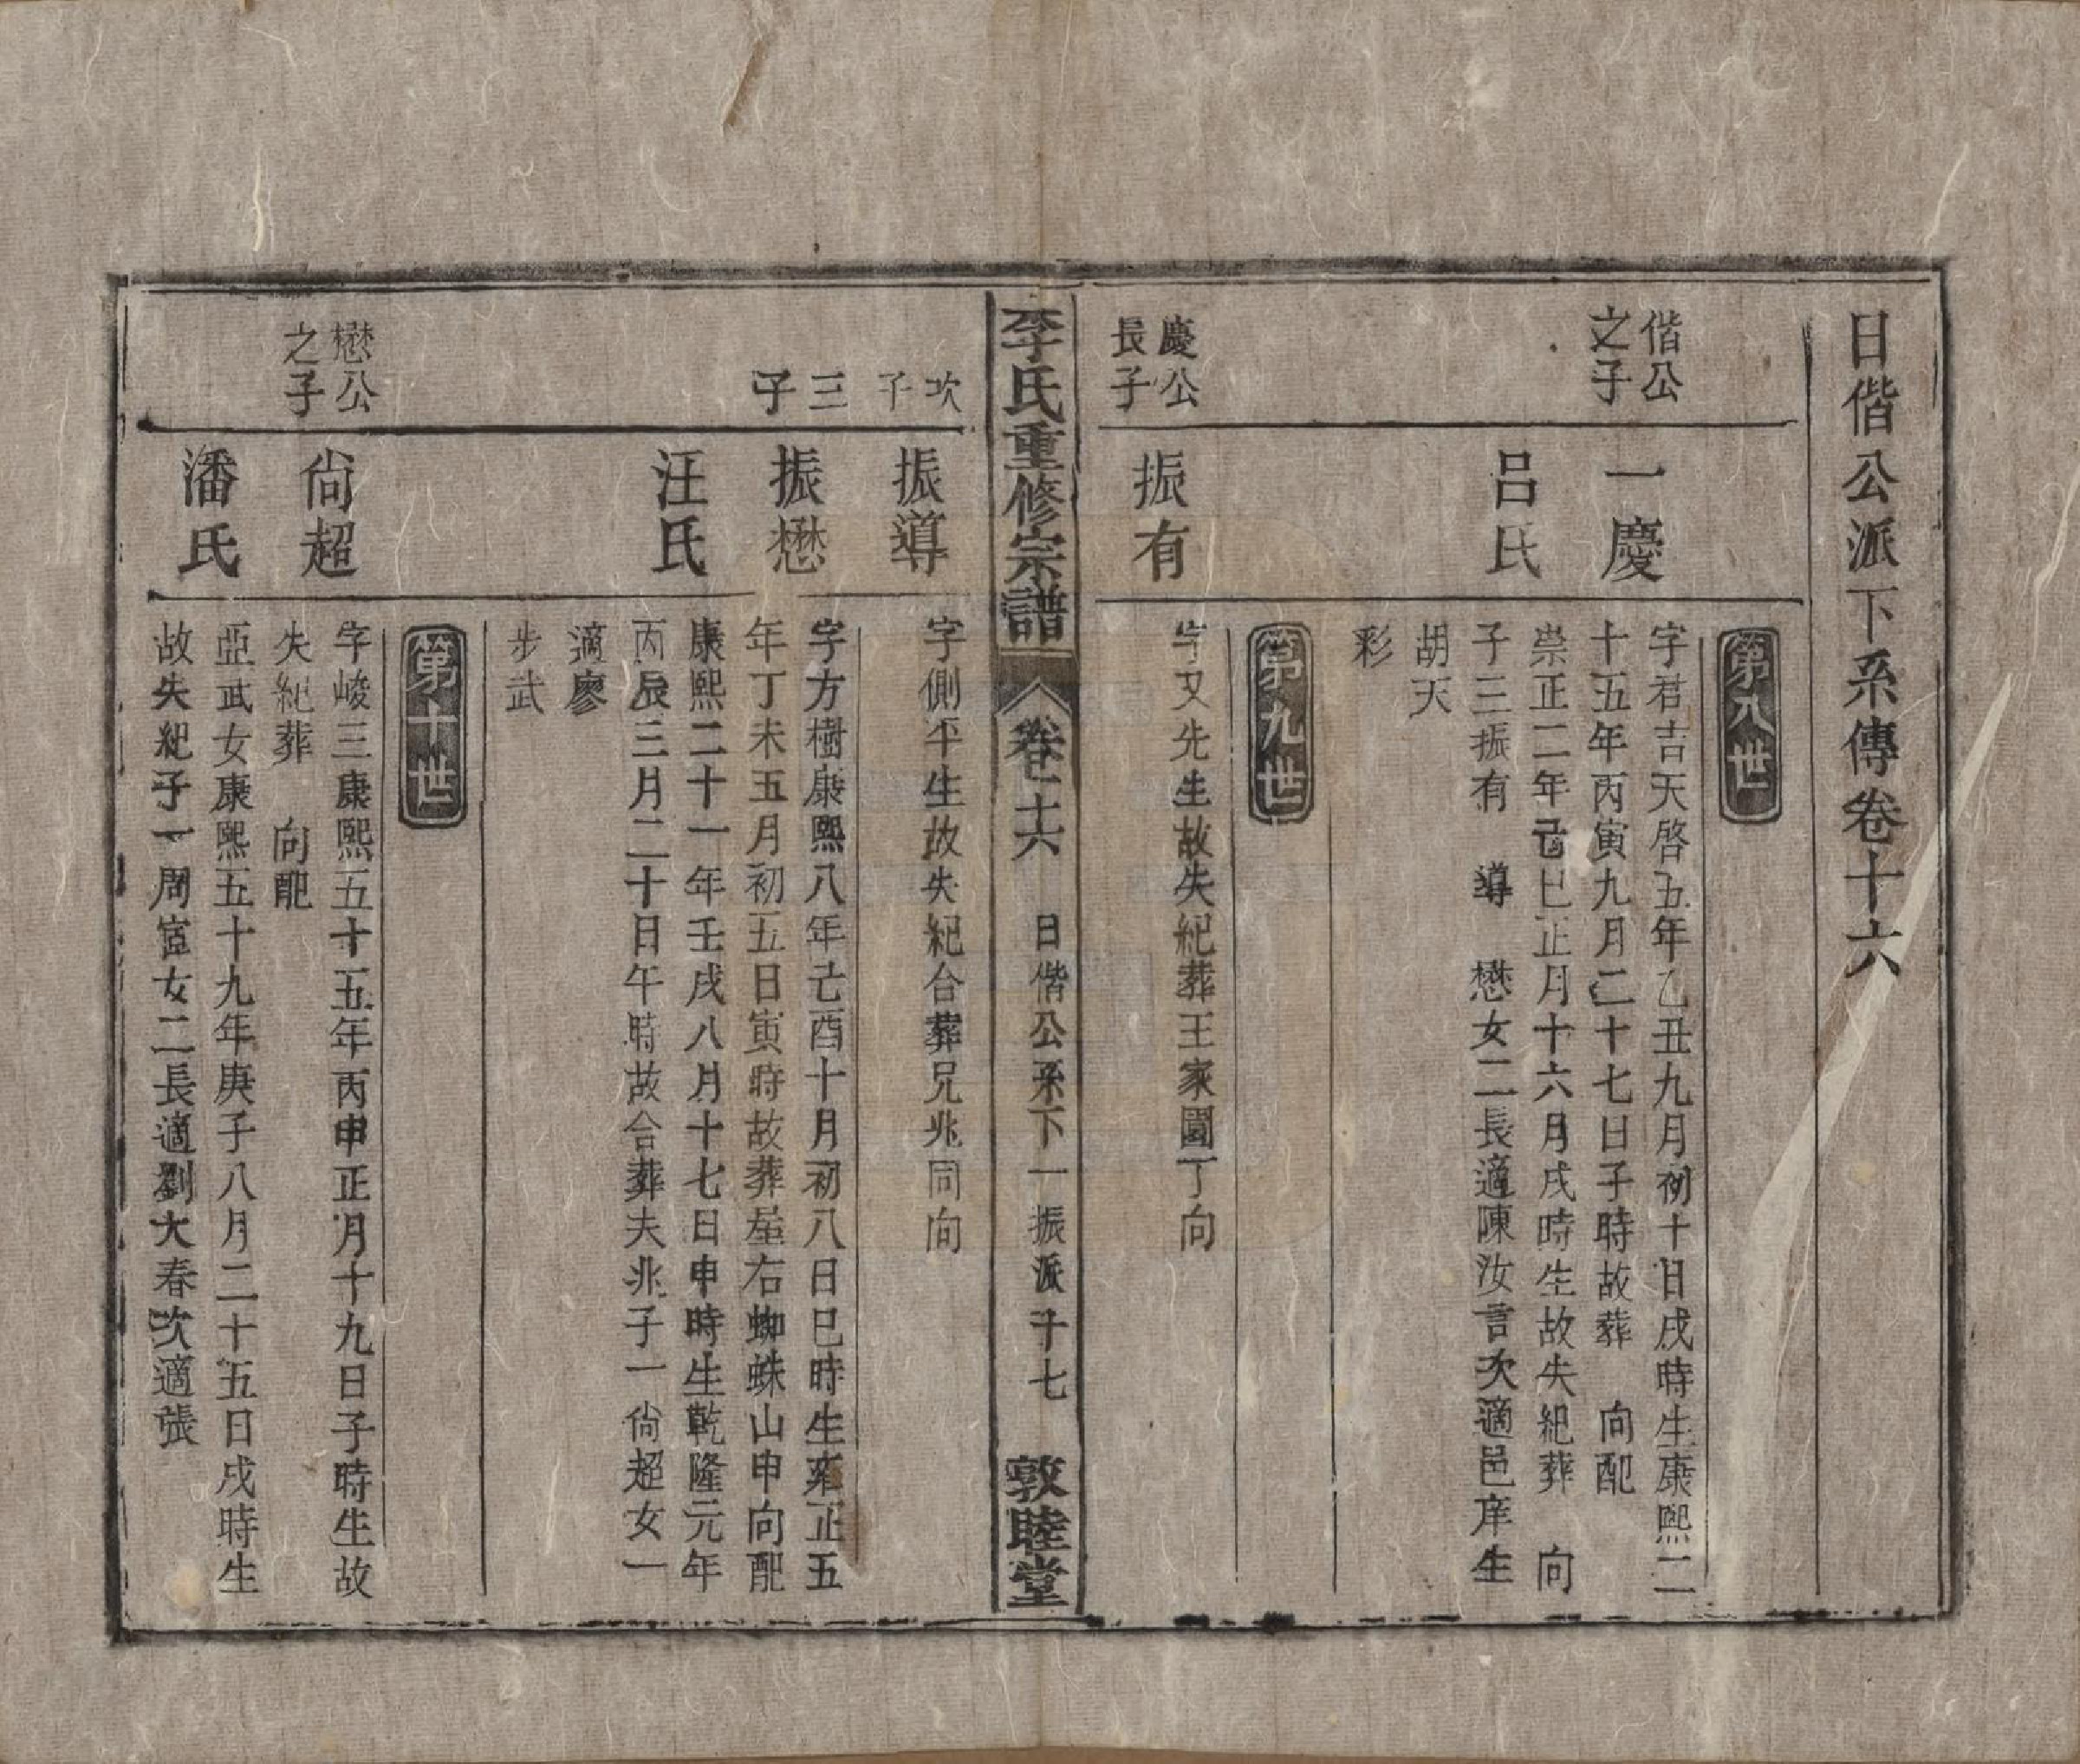 日偕公派下系傳卷十六
第八世
偕公
之子
一慶
字君吉天啓五年乙丑九月初十日戌時生康熙二
十五年丙寅九月二十七日子時故葬　向配
呂氏
崇正二年己巳正月十六月戌時生故失紀葬　向
子三振有　導　懋女二長適陳汝言次適邑庠生
胡天
彩
第九世
慶公
長子
振有
字又先生故失紀葬王家園丁向
李氏重修宗譜
卷十六
日偕公系下一振派
千七
敦睦堂
次
子
振導
字側平生故失紀合葬兄兆同向
三
子
振懋
字方樹康熙八年乙酉十月初八日巳時生雍正五
年丁未五月初五日寅時故葬屋右蜘蛛山申向配
汪氏
康熙二十一年壬戌八月十七日申時生乾隆元年
丙辰三月二十日午時故合葬夫兆子一尙超女一
適廖
步武
第十世
懋公
之子
尙超
字峻三康熙五十五年丙申正月十九日子時生故
失紀葬　向配
潘氏
亞武女康熙五十九年庚子八月二十五日戌時生
故失紀子一周宦女二長適劉大春次適張